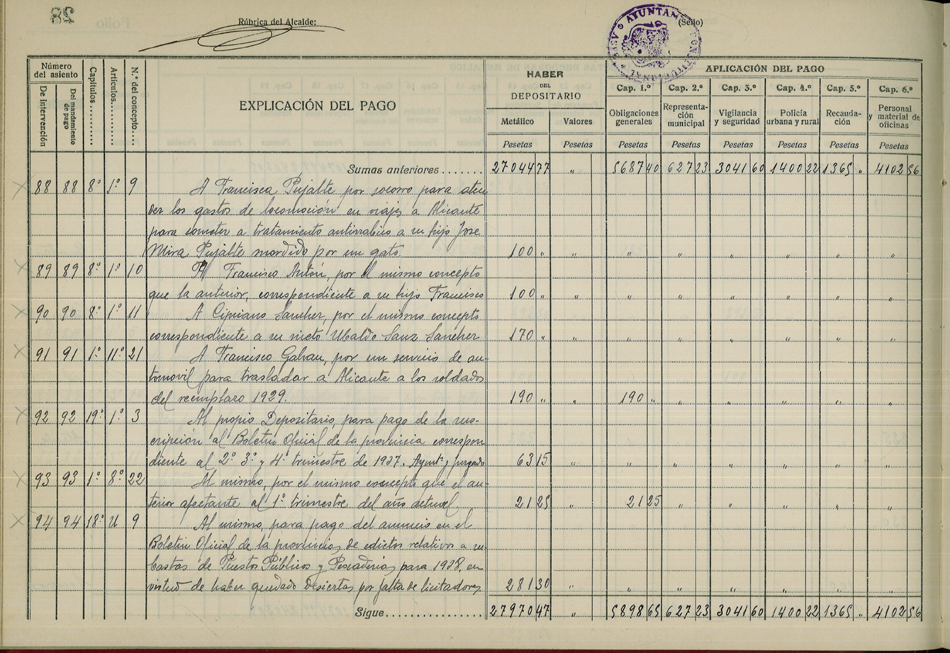 28
Rúbrica del Alcalde:
(Sello)
AYUNTAM CONSTITUCIONAL
Número del asiento
De intervención
Del mandamiento de pago
Capítulos
Artículos
N.º del concepto
EXPLICACIÓN DEL PAGO
HABER DEL DEPOSITARIO
Metálico Valores
Pesetas Pesetas
APLICACIÓN DEL PAGO
Cap. 1.º Cap. 2.º Cap. 3.º Cap. 4.º Cap. 5.º Cap. 6.º
Obligaciones generales Representación municipal Vigilancia y seguridad Policía urbana y rural Recaudación Personal y material de oficinas
Pesetas Pesetas Pesetas Pesetas Pesetas Pesetas
Sumas anteriores....... 27044 77 " 5687 40 627 23 3041 60 1400 22 1365 " 4102 56
88 88 8º 1º 9 A Francisca Pujalte por socorro para aten
der los gastos de locomoción en viajes a Alicante
para someter a tratamiento antirrabico a su hijo Jose
Mira Pujalte mordido por un gato. 100 " " " " " " " "
89 89 8º 1º 10 A Francisco Antón, por el mismo concepto
que la anterior, correspondiente a su hijo Francisco 100 " " " " " " " "
90 90 8º 1º 11 A Cipriano Sanchez, por el mismo concepto
correspondiente a su nieto Ubaldo Sanz Sanchez 170 " " " " " " " "
91 91 1º 11º 21 A Francisco Galvau, por un servicio de au
tomovil para trasladar a Alicante a los soldados
del reemplazo 1929. 190 " " 190 " " " " " "
92 92 19º 1º 3 Al propio Depositario, para pago de la sus-
cripción al Boletin Oficial de la provincia correspon
diente al 2º 3º y 4º trimestre de 1927. Ayunt. y juzgado 63 15 " " " " " " "
93 93 1º 8º 22 Al mismo, por el mismo concepto que el an-
terior afectante al 1º trimestre del año actual 21 25 " 21 25 " " " " "
94 94 18º U 9 Al mismo, para pago del anuncio en el
Boletin Oficial de la provincia, de edictos relativos a su
bastas de Puestos Públicos y Pescaderia, para 1928, en
virtud de haber quedado desiertas por falta de licitadores 281 30 " " " " " " "
Sigue................ 27970 47 " 5898 65 627 23 3041 60 1400 22 1365 " 4102 56